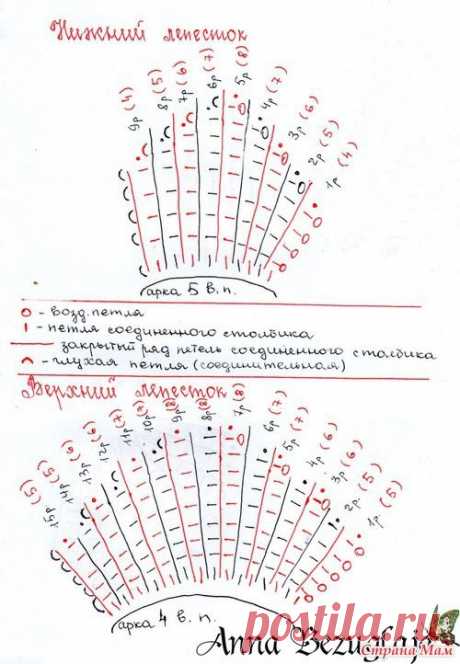 Нижний лепесток
9р (4)
8р (5)
7р (6)
6р (7)
5р (8)
4р (7)
3р (6)
2р (5)
1р (4)
арка 5 в.п.
- возд. петля
- петля соединенного столбика
- закрытый ряд петель соединенного столбика
- глухая петля (соединительная)
Верхний лепесток
15р (5)
14р (5)
13р (6)
12р (6)
11р (7)
10р (7)
9р (8)
8р (8)
7р (8)
6р (7)
5р (7)
4р (6)
3р (6)
2р. (5)
1р (5)
арка 4 в. п.
Anna Bezuglaja
postila.ru
Страна Мам